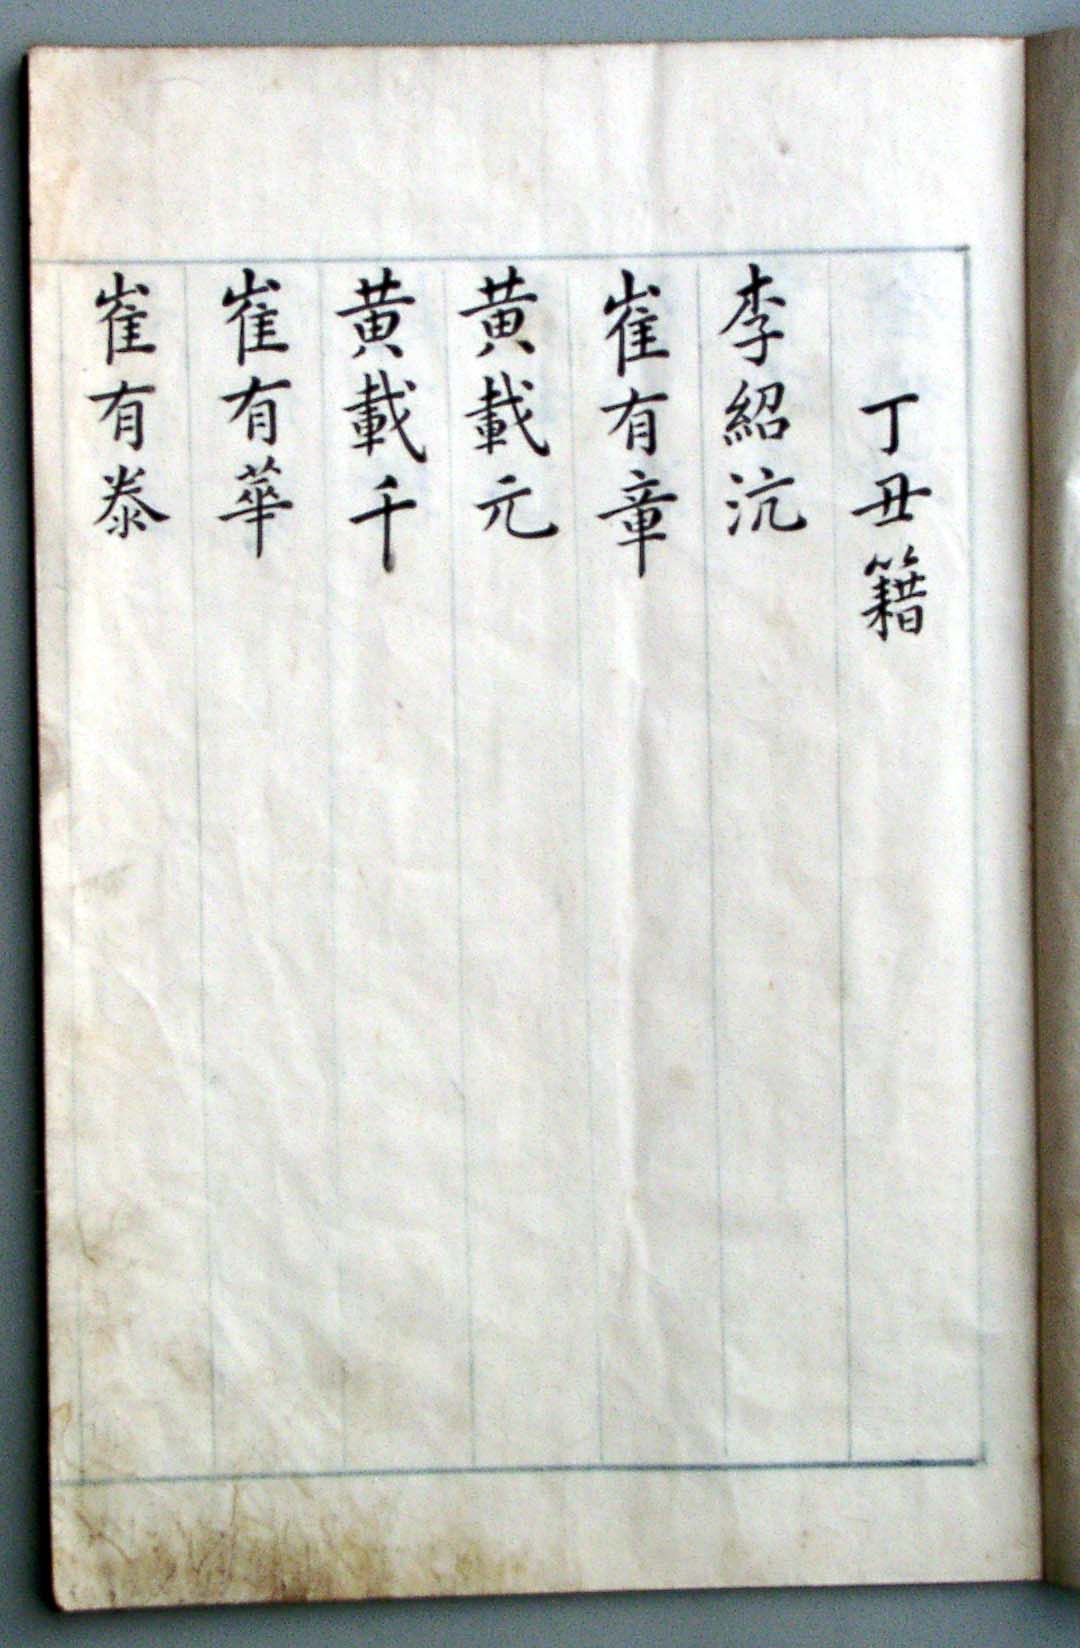 丁丑籍
李紹沆
崔有章
黃載元
黃載千
崔有華
崔有泰